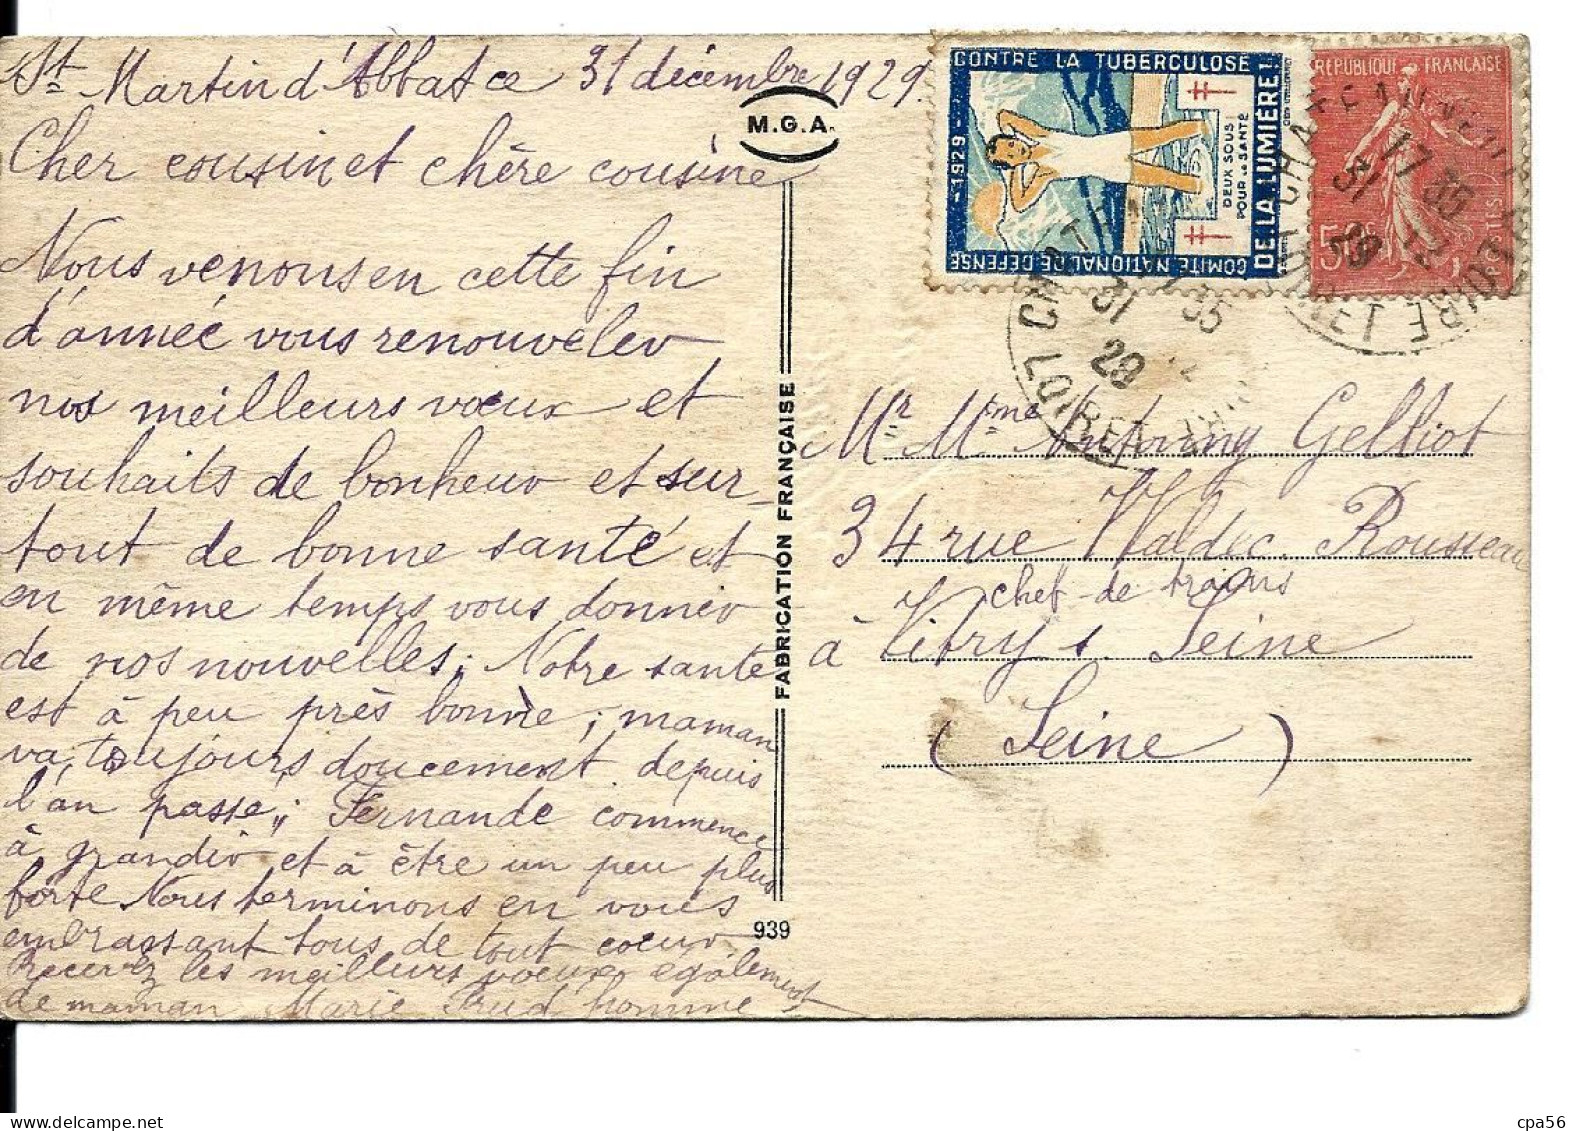 St Martin d'Abbat ce 31 décembre 1929.
Cher cousin et chère cousine
Nous venons en cette fin
d'année vous renouveler
nos meilleurs vœux et
souhaits de bonheur et sur-
tout de bonne santé et
en même temps vous donner
de nos nouvelles; Notre santé
est à peu près bonne; maman
va toujours doucement depuis
l'an passé; Fernande commence
à grandir et à être un peu plus
forte Nous terminons en vous
embrassant tous de tout cœur
Recevez les meilleurs voeux également
de maman Marie Prud'homme
M.G.A.
FABRICATION FRANÇAISE
939
CONTRE LA TUBERCULOSE
DE LA LUMIÈRE!
1929
DEUX SOUS
POUR LA SANTÉ
COMITÉ NATIONAL DE DÉFENSE
REPUBLIQUE FRANÇAISE
POSTES
17 35
31 12
29
LOIRET
31
35
29
LOIRET
Mr Mme Gelliot
34 rue Waldec Rousseau
chef de trains
à Vitry s. Seine
(Seine)
cpa56